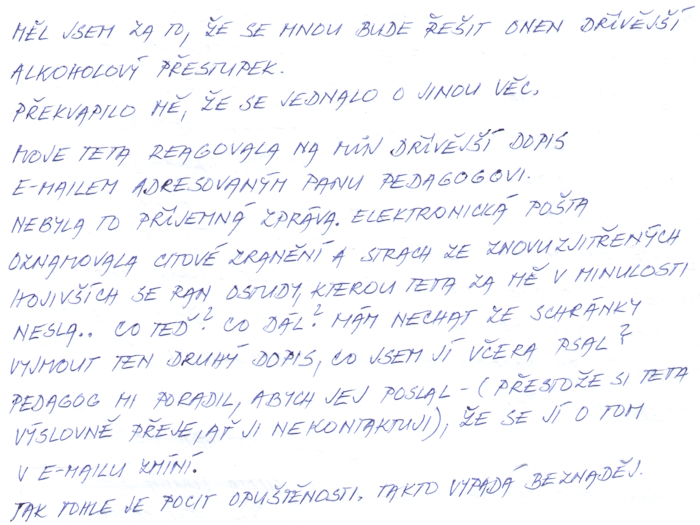 MĚL JSEM ZA TO, ŽE SE MNOU BUDE ŘEŠIT ONEN DŘÍVĚJŠÍ
ALKOHOLOVÝ PŘESTUPEK.
PŘEKVAPILO MĚ, ŽE SE JEDNALO O JINOU VĚC.
MOJE TETA REAGOVALA NA MŮJ DŘÍVĚJŠÍ DOPIS
E-MAILEM ADRESOVANÝM PANU PEDAGOGOVI.
NEBYLA TO PŘÍJEMNÁ ZPRÁVA. ELEKTRONICKÁ POŠTA
OZNAMOVALA CITOVÉ ZRANĚNÍ A STRACH ZE ZNOVUZJITŘENÝCH
HOJIVŠÍCH SE RAN OSTUDY, KTEROU TETA ZA MĚ V MINULOSTI
NESLA.. CO TEĎ? CO DÁL? MÁM NECHAT ZE SCHRÁNKY
VYJMOUT TEN DRUHÝ DOPIS, CO JSEM JÍ VČERA PSAL?
PEDAGOG MI PORADIL, ABYCH JEJ POSLAL - (PŘESTOŽE SI TETA
VÝSLOVNĚ PŘEJE, AŤ JI NEKONTAKTUJI), ŽE SE JÍ O TOM
V E-MAILU ZMÍNÍ.
TAK TOHLE JE POCIT OPUŠTĚNOSTI. TAKTO VYPADÁ BEZNADĚJ.